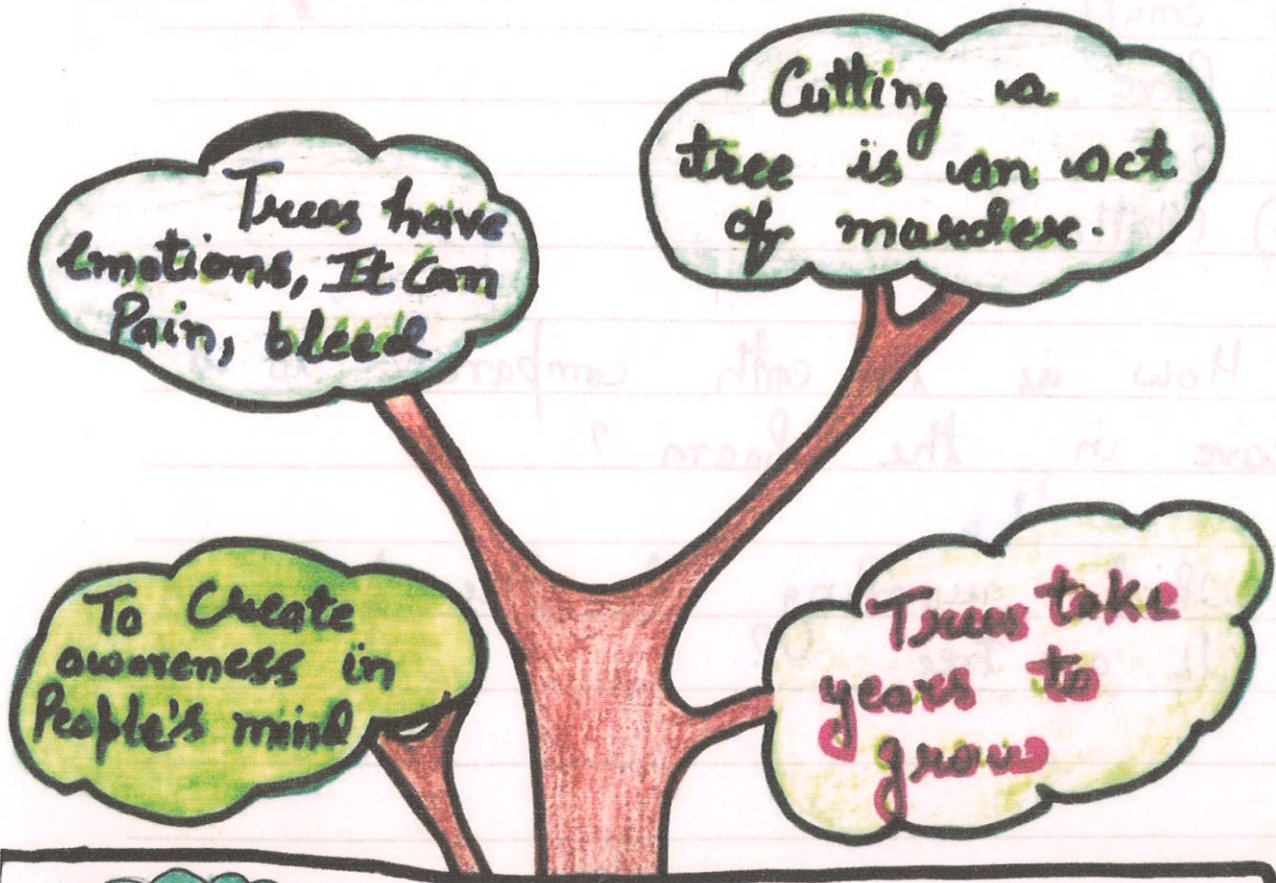 Trees have
emotions, It Can
Pain, bleed
Cutting a
tree is an act
of marder.
To Create
awareness in
People's mind
Trees take
years to
grow